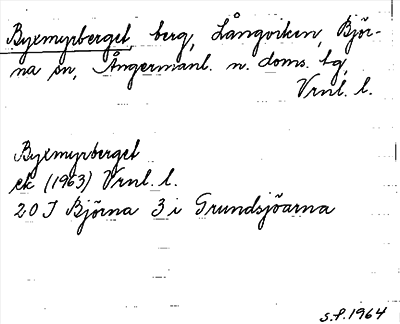 Byxmyrberget, berg, Långviken, Björ-
na sn, Ångermanl. n. doms. tg,
Vrnl. l.
Byxmyrberget
ek (1963) Vrnl. l.
20 J Björna 3 i Grundsjöarna
S.P. 1964